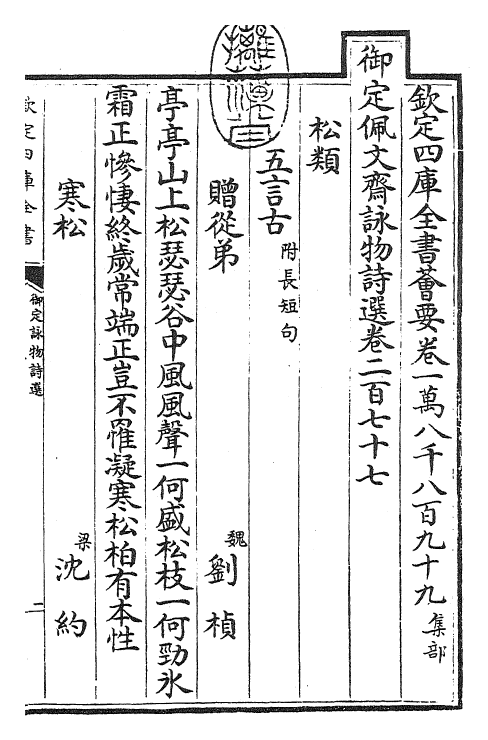 欽定四庫全書薈要卷一萬八千八百九十九 集部
御定佩文齋詠物詩選卷二百七十七
松類
五言古 附長短句
贈從弟 魏 劉楨
亭亭山上松瑟瑟谷中風風聲一何盛松枝一何勁氷
霜正慘悽終歲常端正豈不罹凝寒松柏有本性
寒松 梁 沈約
欽定四庫全書
御定詠物詩選